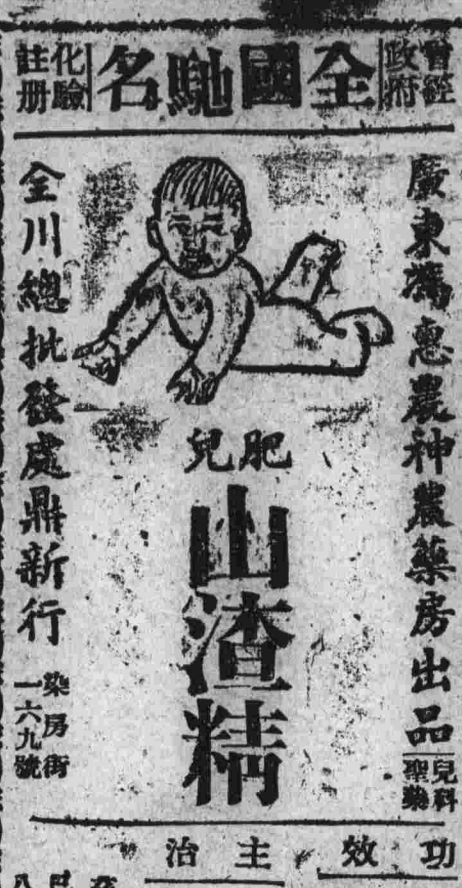 曾經
政府
全國馳名
化驗
註册
廣東馮惠農神農藥房出品
兒科
聖
肥兒
山渣精
全川總批發處鼎新行
染房街
一六九號
功效主治